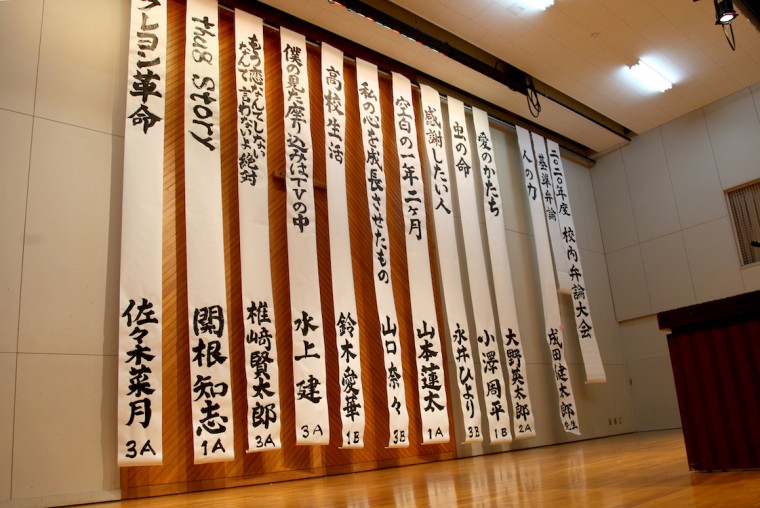 二〇二〇年度 校内弁論大会
基準弁論
人の力 成田健太郎先生
愛のかたち 大野英太郎 2A
虫の命 小澤周平 1B
感謝したい人 永井ひより 3B
空白の一年二ヶ月 山本蓮太 1A
私の心を成長させたもの 山口奈々 3B
高校生活 鈴木愛華 1B
僕の見た座り込みはTVの中 水上建 3A
もう恋なんてしない
なんて言わないよ絶対 椎崎賢太郎 3A
thug story 関根知志 1A
クレヨン革命 佐々木菜月 3A